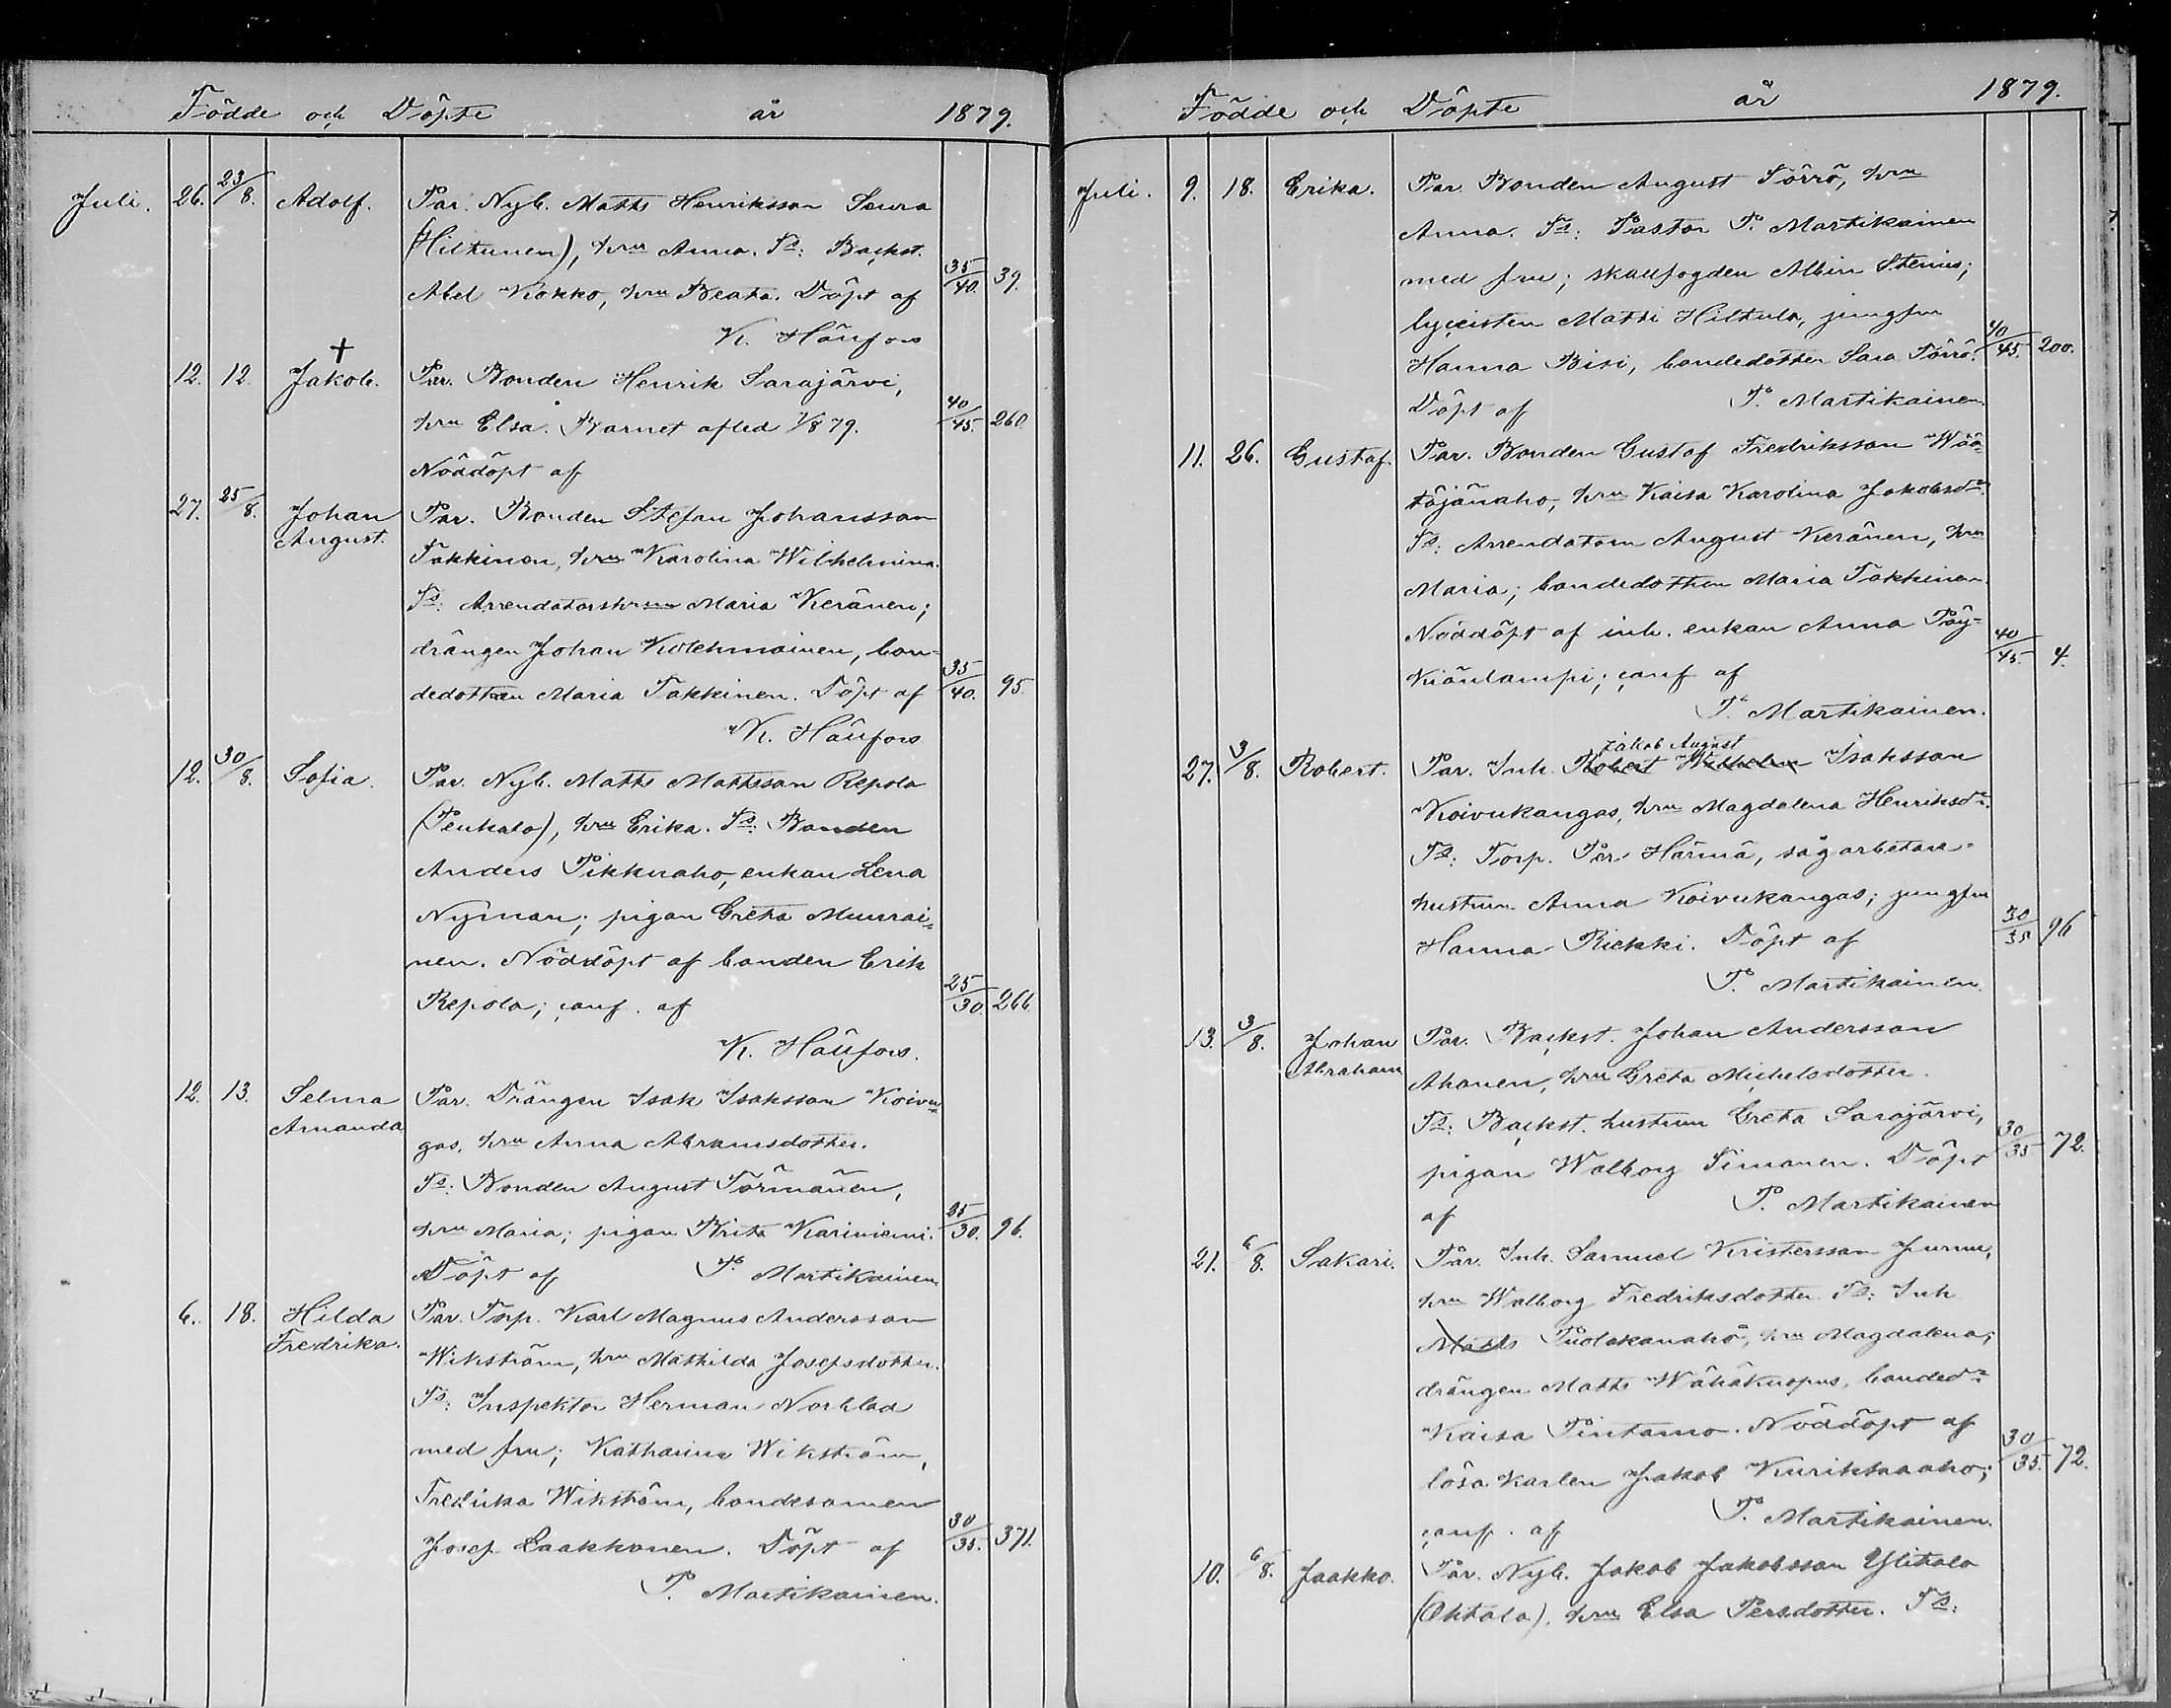 Födde och Döpte år 1879.
Juli. 26. 23/8. Adolf. Par. Nyb. Matts Henriksson Seura
(Hiltunen), hru Anna. Ts: Backst.
Abel Kokko, hru Beata. Döpt af 35/40. 39.
K. Häufors
12. 12. † Jakob. Par. Bonden Henrik Sarajärvi,
hru Elsa. Barnet afled 1/8 79. 40/45. 260.
Nöddöpt af
27. 25/8. Johan Par. Bonden Stefan Johansson
August. Takkinen, hru Karolina Wilhelmina.
Ts: Arrendatorshru Maria Keränen;
drängen Johan Kolehmainen, bon-
dedottren Maria Takkinen. Döpt af 35/40. 95.
K. Häufors
12. 30/8. Sofia. Par. Nyb. Matts Mattsson Repola
(Penkala), hru Erika. Ts: Bonden
Anders Pikkuaho, enkan Lena
Nyman; pigan Greta Murrai-
nen. Nöddöpt af bonden Erik
Repola; conf. af 25/30. 266.
K. Häufors.
12. 13. Selma Par. Drängen Isak Isaksson Koivu-
Amanda gas, hru Anna Abramsdotter.
Ts: Bonden August Törmänen,
hru Maria; pigan Brita Kariniemi. 25/30. 96.
Döpt af P. Martikainen
6. 18. Hilda Par. Torp. Karl Magnus Andersson
Fredrika. Wikström, hru Mathilda Josefsdotter.
Ts: Inspektor Herman Norblad
med fru; Katharina Wikström,
Fredrika Wikström, bondesonen
Josef Laakkonen. Döpt af 30/35. 371.
P. Martikainen.
Födde och Döpte år 1879.
Juli. 9. 18. Erika. Par. Bonden August Törrö, hru
Anna. Ts: Pastor P. Martikainen
med fru; skallfogden Albin Stenius;
lyceisten Matti Hiltula, jungfru
Hanna Bisi, bondedotter Sara Törrö. 40/45. 200.
Döpt af P. Martikainen.
11. 26. Gustaf. Par. Bonden Gustaf Fredriksson Wää-
täjänaho, hru Kaisa Karolina Jakobsdr.
Ts: Arrendatorn August Keränen, hru
Maria; bondedottren Maria Takkinen.
Nöddöpt af inh. enkan Anna Pöy-
kiönlampi; conf af 40/45. 4.
P. Martikainen.
Jakob August
27. 3/8. Robert. Par. Inh. Robert Wilhelm Isaksson
Koivukangas, hru Magdalena Henriksdr.
Ts: Torp. Per Härmä, sågarbetare-
hustrun Anna Koivukangas; jungfru
Hanna Riekki. Döpt af 30/35 96
P. Martikainen.
13. 3/8. Johan Par. Backst. Johan Andersson
Abraham Ahonen, hru Greta Michelsdotter.
Ts: Backst. hustrun Greta Sarajärvi,
pigan Walborg Simonen. Döpt 30/35 72.
af P. Martikainen
21. 6/8. Sakari. Par. Inh. Samuel Kristersson Jurmu,
hru Walborg Fredriksdotter. Ts: Inh
Matts Puolakanaho, hru Magdalena;
drängen Matts Wähäkuopus, bondedr
Kaisa Pintamo. Nöddöpt af
lösa karlen Jakob Kurikkaaho; 30/35. 72.
conf. af P. Martikainen.
10. 6/8. Jaakko. Par. Nyb. Jakob Jakobsson Ylitalo
(Ohtala). hru Elsa Persdotter. Ts: